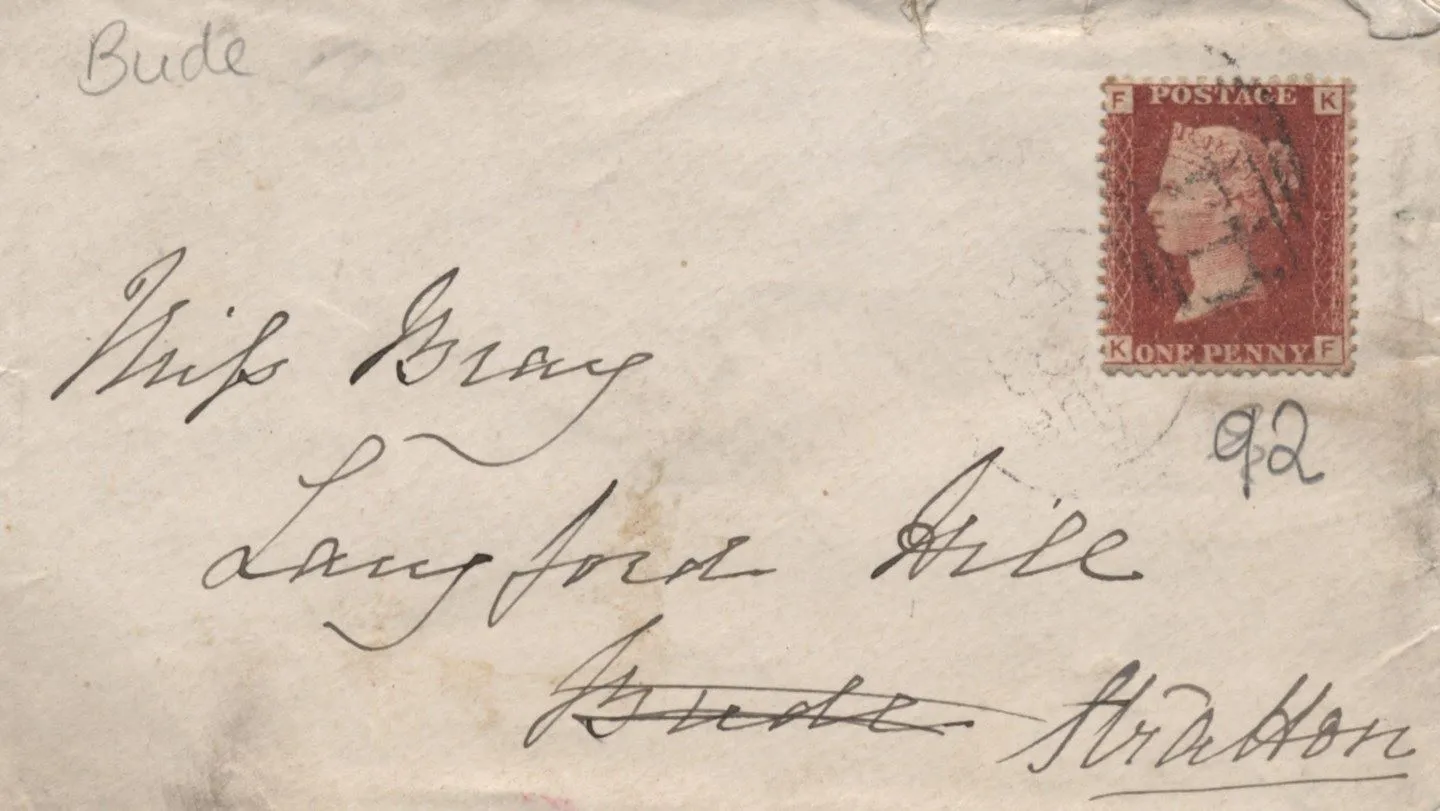 Bude
F POSTAGE K
K ONE PENNY F
92
Miss Bray
Langford Hill
Bude Stratton